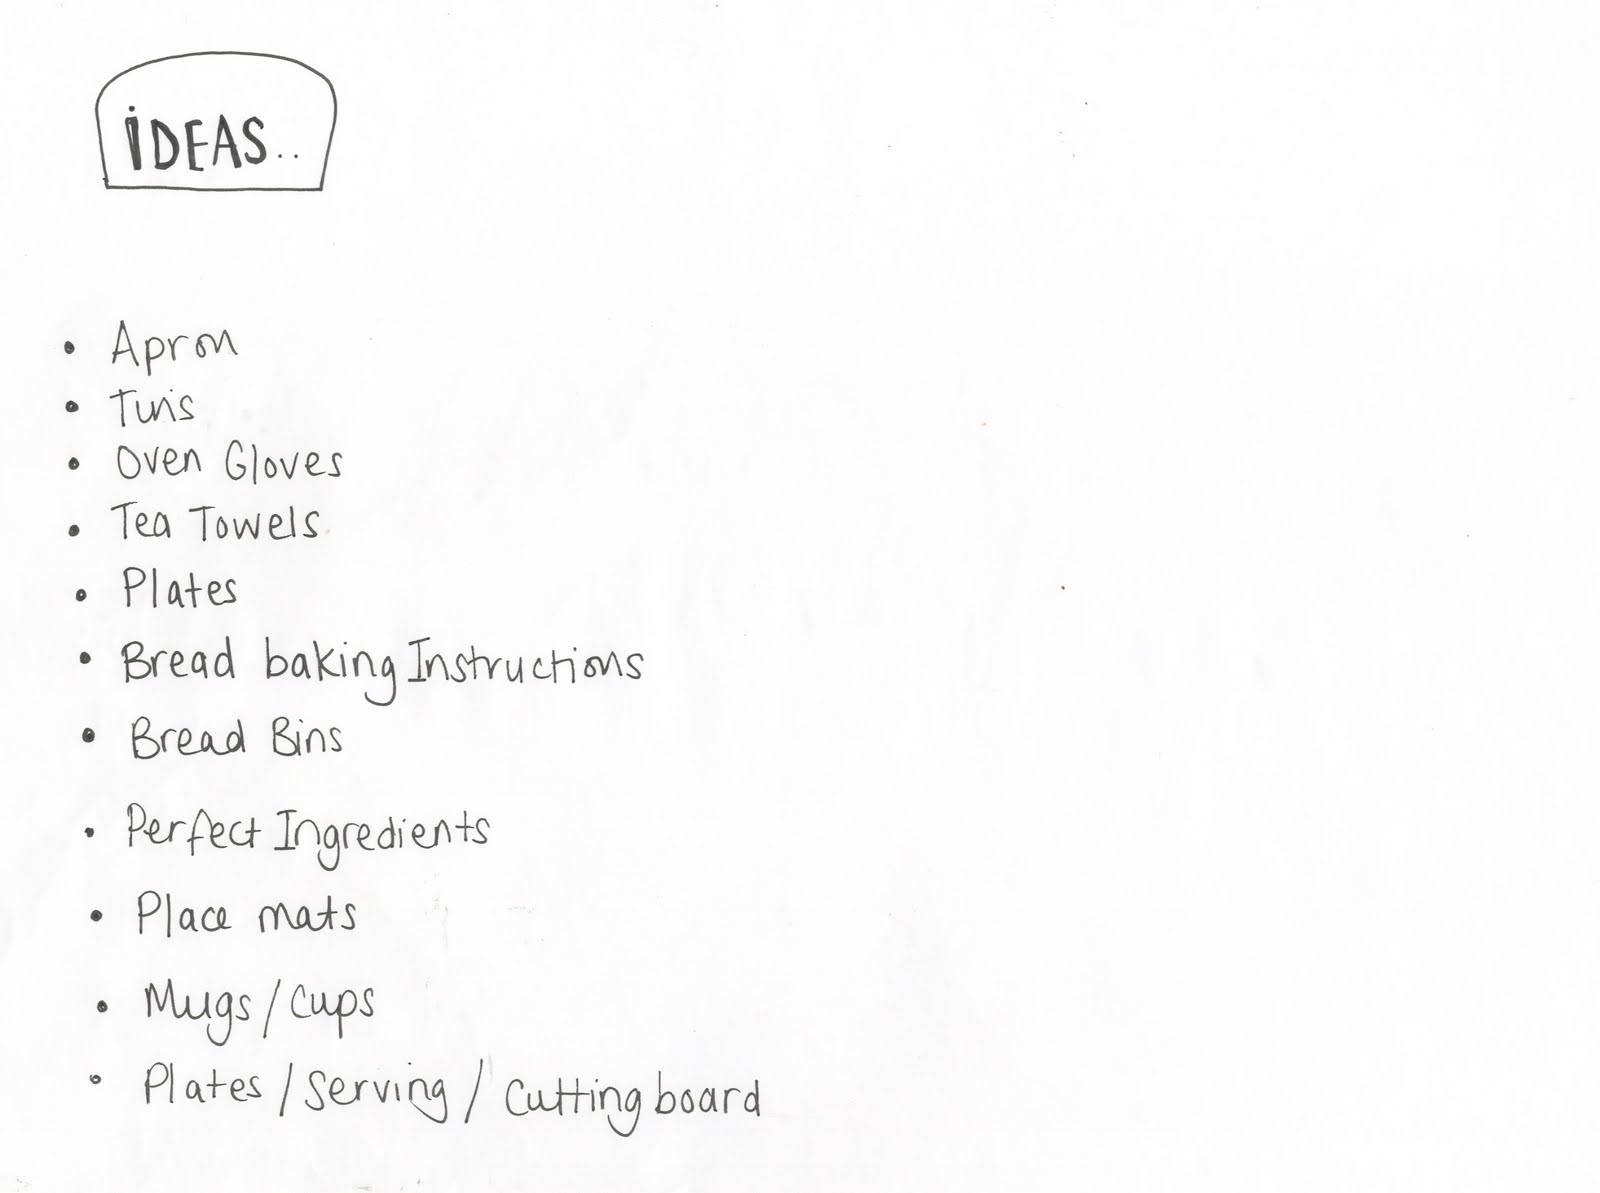 iDEAS..
• Apron
• Tins
• Oven Gloves
• Tea Towels
• Plates
• Bread baking Instructions
• Bread Bins
• Perfect Ingredients
• Place mats
• Mugs/Cups
• Plates/Serving/Cutting board